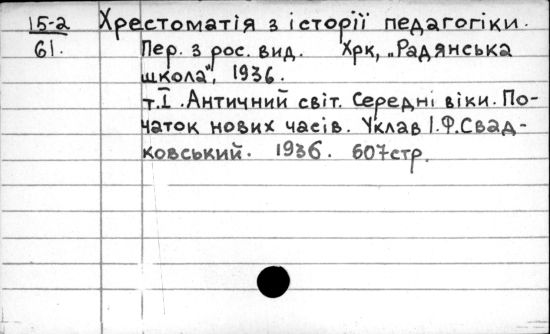 15-2 Хрестоматія з історії педагогіки.
61. Пер. з рос. вид. Хрк, „Радянська
школа", 1936.
т.I. Античний світ. Середні віки. По-
чаток нових часів. Уклав І.Ф.Свад-
ковський. 1936. 607стр.